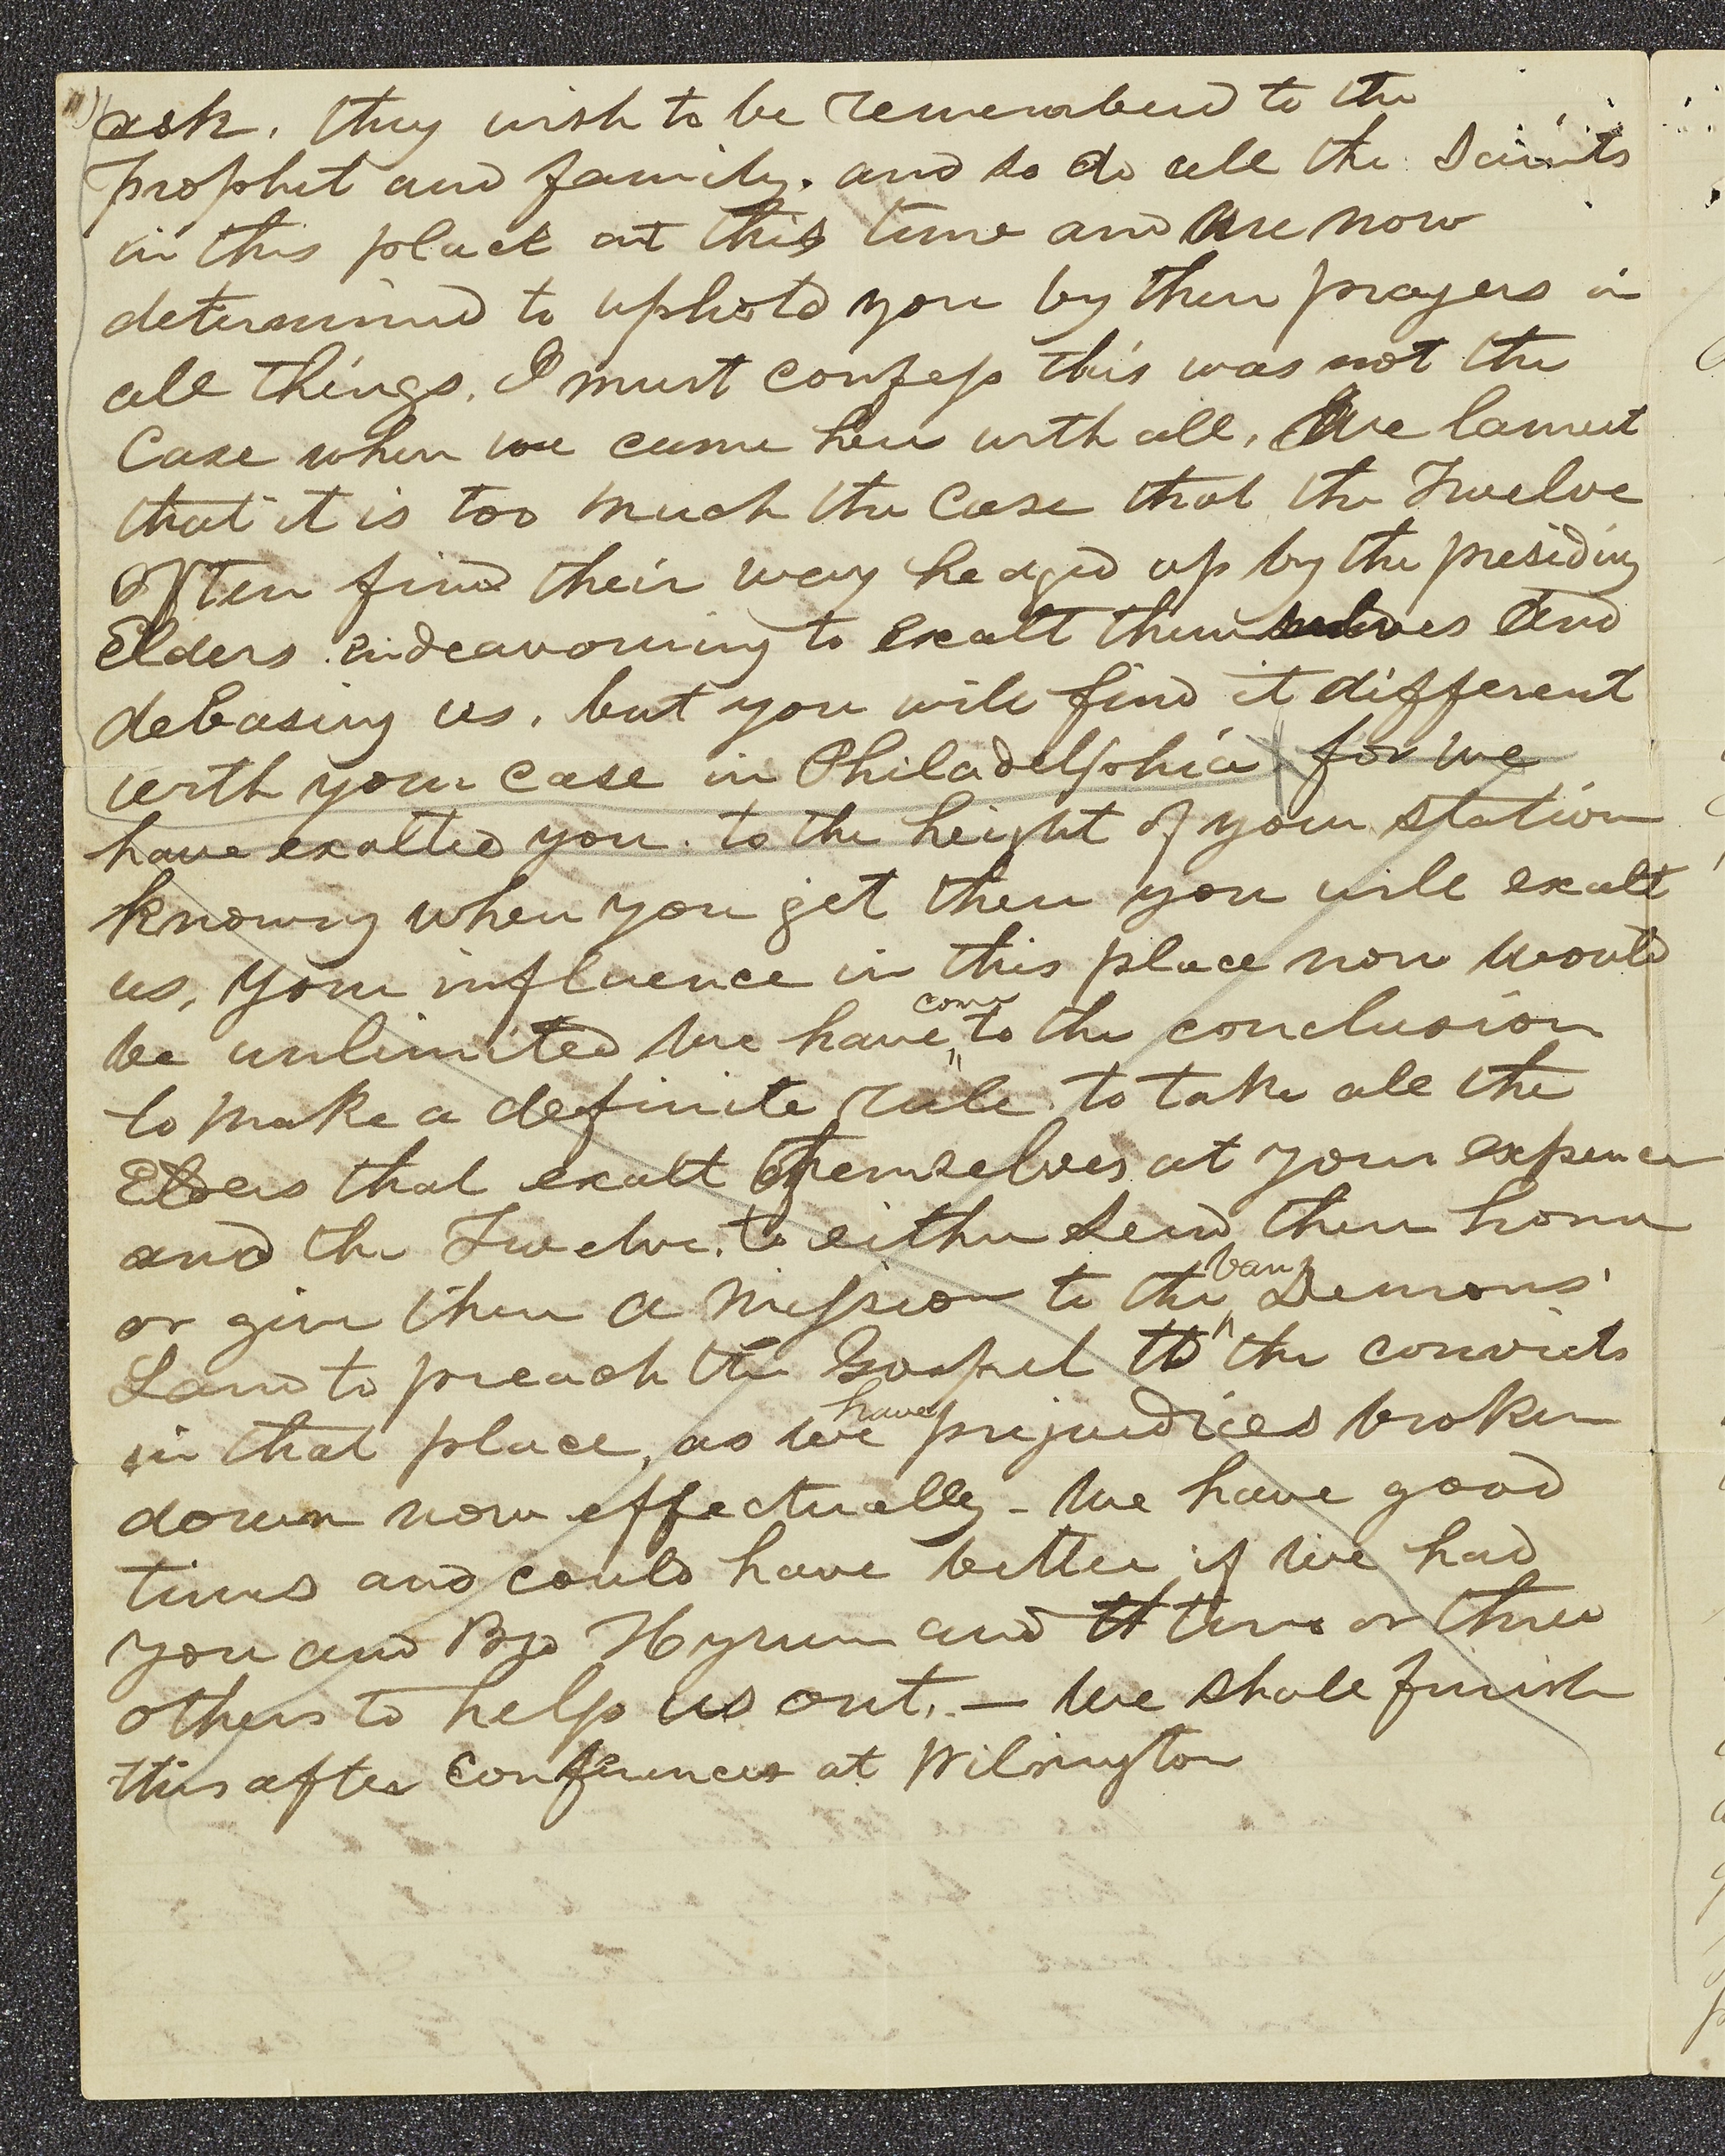 ask. they wish to be rememberd to the
prophet and family. and so do all the Saints
in this place at this time and are now
determined to uphold you by their prayers in
all things. I must confess this was not the
Case when we came here with all. We lament
that it is too much the Case that the Twelve
often find their way heaged up by the presiding
Elders. endeavouring to exalt themselves and
debasing us. but you will find it different
with your case in Philadelphia for we
have exalted you. to the height of your station
knowing when you get there you will exalt
us, your influence in this place now would
be unlimited We have come to the conclusion
to make a definite rule. to take all the
Elders that exalt themselves at your expence
and the Twelve. to either send them home
or give them a mission to the van Demons
Land to preach the Gospel to the convicts
in that place, as we have prejudices broken
down now effectually - We have good
times and could have better if we had
you and Bro Hyrum and tt two or three
others to help us out. — We shall finish
this after conferences at Wilmington